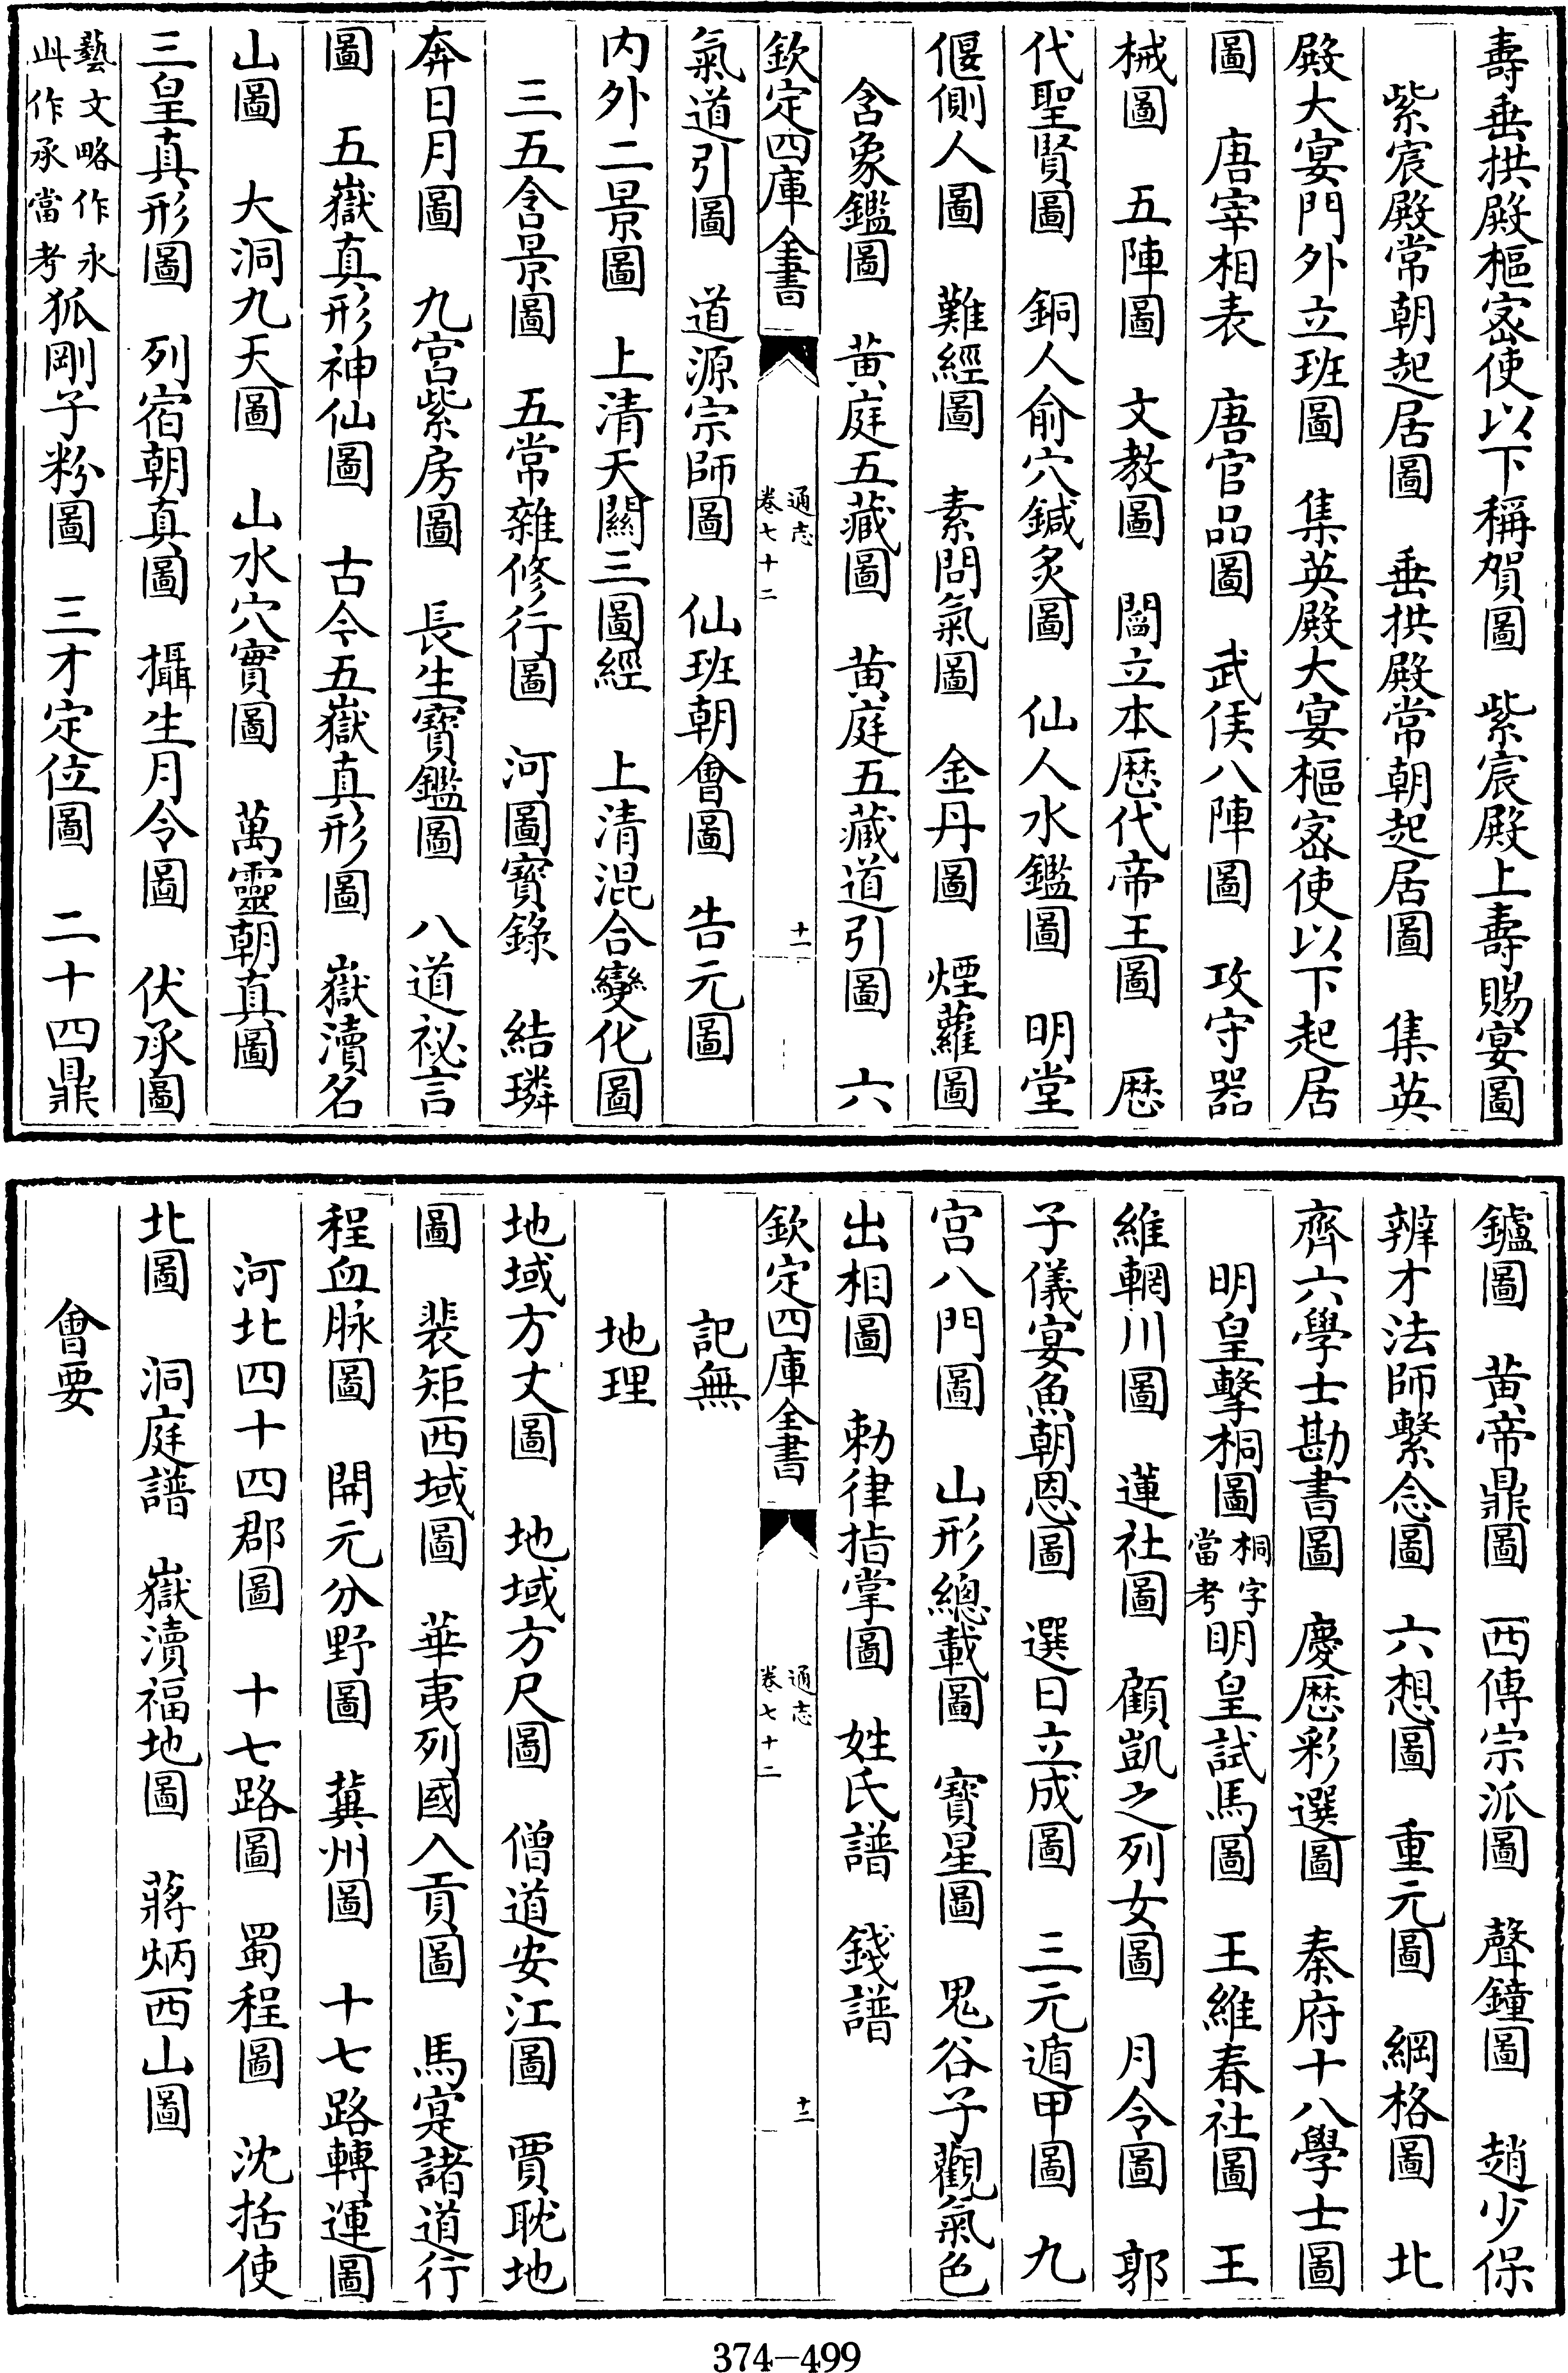 壽垂拱殿樞宻使以下稱賀圖　紫宸殿上壽賜宴圖
　紫宸殿常朝起居圖　垂拱殿常朝起居圖　集英
殿大宴門外立班圖　集英殿大宴樞宻使以下起居
圖　唐宰相表　唐官品圖　武侯八陣圖　攻守器
械圖　五陣圖　文教圖　閻立本歴代帝王圖　歴
代聖賢圖　銅人俞穴鍼炙圖　仙人水鑑圖　明堂
偃側人圖　難經圖　素問氣圖　金丹圖　煙蘿圖
　含象鑑圖　黄庭五藏圖　黄庭五藏道引圖　六
欽定四庫全書　通志卷七十二　十一
氣道引圖　道源宗師圖　仙班朝會圖　告元圖
内外二景圖　上清天關三圖經　上清混合變化圖
　三五含景圖　五常雜修行圖　河圖寳錄　結璘
奔日月圖　九宫紫房圖　長生寳鑑圖　八道祕言
圖　五嶽真形神仙圖　古今五嶽真形圖　嶽瀆名
山圖　大洞九天圖　山水穴寳圖　萬靈朝真圖
三皇真形圖　列宿朝真圖　攝生月令圖　伏承圖
藝文略作永此作承當考狐剛子粉圖　三才定位圖　二十四鼎
鑪圖　黄帝鼎圖　西傳宗派圖　聲鐘圖　趙少保
辨才法師繫念圖　六想圖　重元圖　綱格圖　北
齊六學士勘書圖　慶歴彩選圖　秦府十八學士圖
　明皇擊桐圖桐字當考明皇試馬圖　王維春社圖　王
維輞川圖　蓮社圖　顧凱之列女圖　月令圖　郭
子儀宴魚朝恩圖　選日立成圖　三元遁甲圖　九
宫八門圖　山形總載圖　寳星圖　鬼谷子觀氣色
出相圖　勅律指掌圖　姓氏譜　錢譜
欽定四庫全書　通志卷七十二　十二
記無
地理
地域方丈圖　地域方尺圖　僧道安江圖　賈耽地
圖　裴矩西域圖　華夷列國入貢圖　馬寔諸道行
程血脉圖　開元分野圖　冀州圖　十七路轉運圖
　河北四十四郡圖　十七路圖　蜀程圖　沈括使
北圖　洞庭譜　嶽瀆福地圖　蔣炳西山圖
會要
374—499